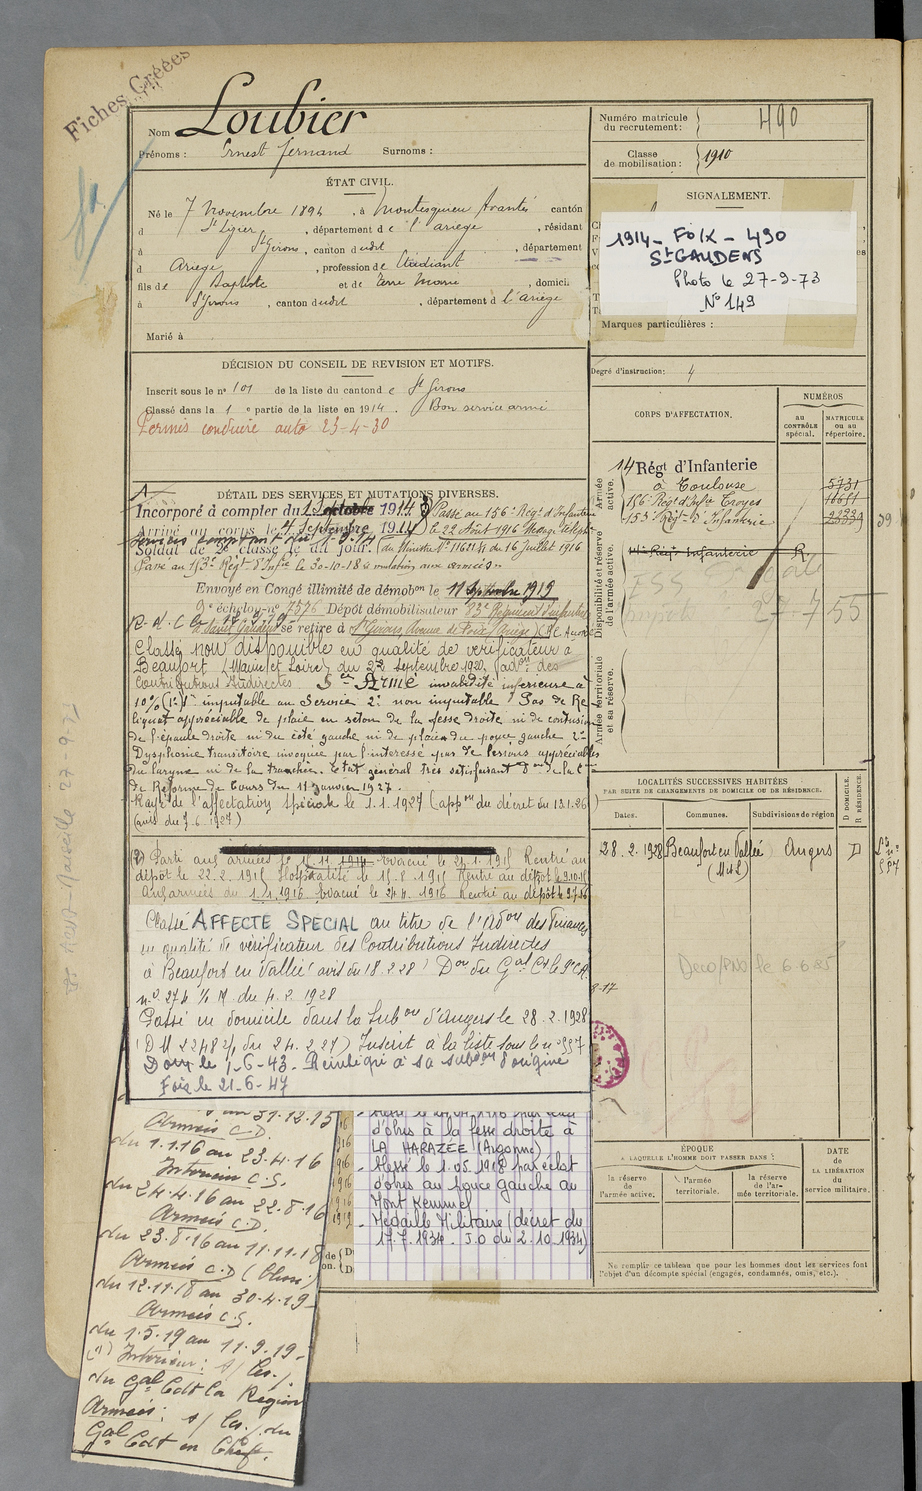 Fiches Créées
Nom Loubier
Prénoms : Ernest Fernand Surnoms :
ÉTAT CIVIL.
Né le 7 Novembre 1894, à Montesquieu Avantés canton
d St Lizier, département de l'ariège, résidant
à St Girons, canton dudit, département
d Ariège, profession de Etudiant
fils de Baptiste et de Marie, domicilié
à St Girons, canton dudit, département d l'ariège
Marié à
DÉCISION DU CONSEIL DE REVISION ET MOTIFS.
Inscrit sous le n° 101 de la liste du canton de St Girons
Classé dans la 1e partie de la liste en 1914. Bon service armé
Permis conduire auto 23-4-30
DÉTAIL DES SERVICES ET MUTATIONS DIVERSES.
Incorporé à compter du 1 1914 Passé au 156e Régt d'Infanterie
Arrivé au corps le 4 Septembre 1914 le 22 Août 1916
Soldat de 2e classe le dit jour. du Ministre du 16 Juillet 1916
Passé au 153e Régt d'Infie le 30-10-18
Envoyé en Congé illimité de démobon le 11 Septembre 1919
9e échelon n° 7576 Dépôt démobilisateur 83e Régiment d'infanterie
à Saint Gaudens se retire à St Girons, Avenue de Foix (Ariège)
Classé non disponible en qualité de vérificateur à
Beaufort (Maine et Loire) du 22 Septembre 1920 (adon des
Contributions Indirectes Sce Armé invalidité inférieure à
10% (1°) 1° imputable au Service 2° non imputable Pas de Re
liquat appréciable de plaie en séton de la fesse droite ni de contusion
de l'épaule droite ni du côté gauche ni de plaie du pouce gauche 2°
Dysphonie transitoire invoquée par l'intéressé pas de lésions appréciables
du larynx ni de la trachée. Etat général très satisfaisant Don de la C
de Réforme de Tours du 11 Janvier 1927.
Rayé de l'affectation spéciale le 1.1.1927 (appon du décret du 13.1.26)
(avis du 7.6.1927)
(2) Parti aux armées le 15.11.1914 Evacué le 24.1.1915 Rentré au
dépôt le 22.2.1915 Hospitalisé le 15.8.1915 Rentré au dépôt le 9.10.15
Aux armées du 1.1.1916 Evacué le 24.4.1916 Rentré au dépôt le
Classé AFFECTE SPECIAL au titre de l'Adon des Finances
en qualité de vérificateur des Contributions Indirectes
à Beaufort en Vallée (avis du 18.2.28) Don du Gal Ct le 9e CA
n° 274 1/M. du 4.2.1928
Passé en domicile dans la Subon d'Angers le 28.2.1928
(DM 2248 2/1 du 24.2.27) Inscrit à la liste sous le n° 557
Domé le 1-6-43. Réintégré à sa subon d'origine
Foix le 21-6-47
au 31.12.15
Armées C.D.
du 1.1.16 au 23.4.16
Intérieur C.S.
du 24.4.16 au 22.8.16
Armées C.D.
du 23.8.16 au 11.11.18
Armées C.D
du 12.11.18 au 30.4.19
Armées C.S.
du 1.5.19 au 11.9.19
(1) Intérieur : s/
du Gal Cdt la Région
Armées : s/ du
Gal Cdt en Chef
d'obus à la fesse droite à
LA HARAZÉE (Argonne)
- blessé le 1.05.1918 par éclat
d'obus au pouce gauche au
Mont Kemmel
- Médaille Militaire (décret du
17.7.1934. J.O du 2.10.1934)
Numéro matricule du recrutement : 490
Classe de mobilisation : 1910
SIGNALEMENT.
1914 - FOIX - 490
St GAUDENS
Photo le 27-9-73
N° 149
Marques particulières :
Degré d'instruction : 4
CORPS D'AFFECTATION.
NUMÉROS
au CONTRÔLE spécial.
MATRICULE ou au répertoire.
Armée active.
14 Régt d'Infanterie
à Toulouse
156e Régt d'Infie Troyes
153e Régt d'Infanterie
Disponibilité et réserve de l'armée active.
14e Régt Infanterie R
27-7 55
Armée territoriale et sa réserve.
LOCALITÉS SUCCESSIVES HABITÉES
PAR SUITE DE CHANGEMENTS DE DOMICILE OU DE RÉSIDENCE.
Dates.
Communes.
Subdivisions de région
D DOMICILE.
R RÉSIDENCE.
28.2.1928 Beaufort en Vallée Angers D
(M et L)
557
le 6.6.85
ÉPOQUE
A LAQUELLE L'HOMME DOIT PASSER DANS :
la réserve de l'armée active.
l'armée territoriale.
la réserve de l'armée territoriale.
DATE de LA LIBÉRATION du service militaire.
Ne remplir ce tableau que pour les hommes dont les services font
l'objet d'un décompte spécial (engagés, condamnés, omis, etc.).